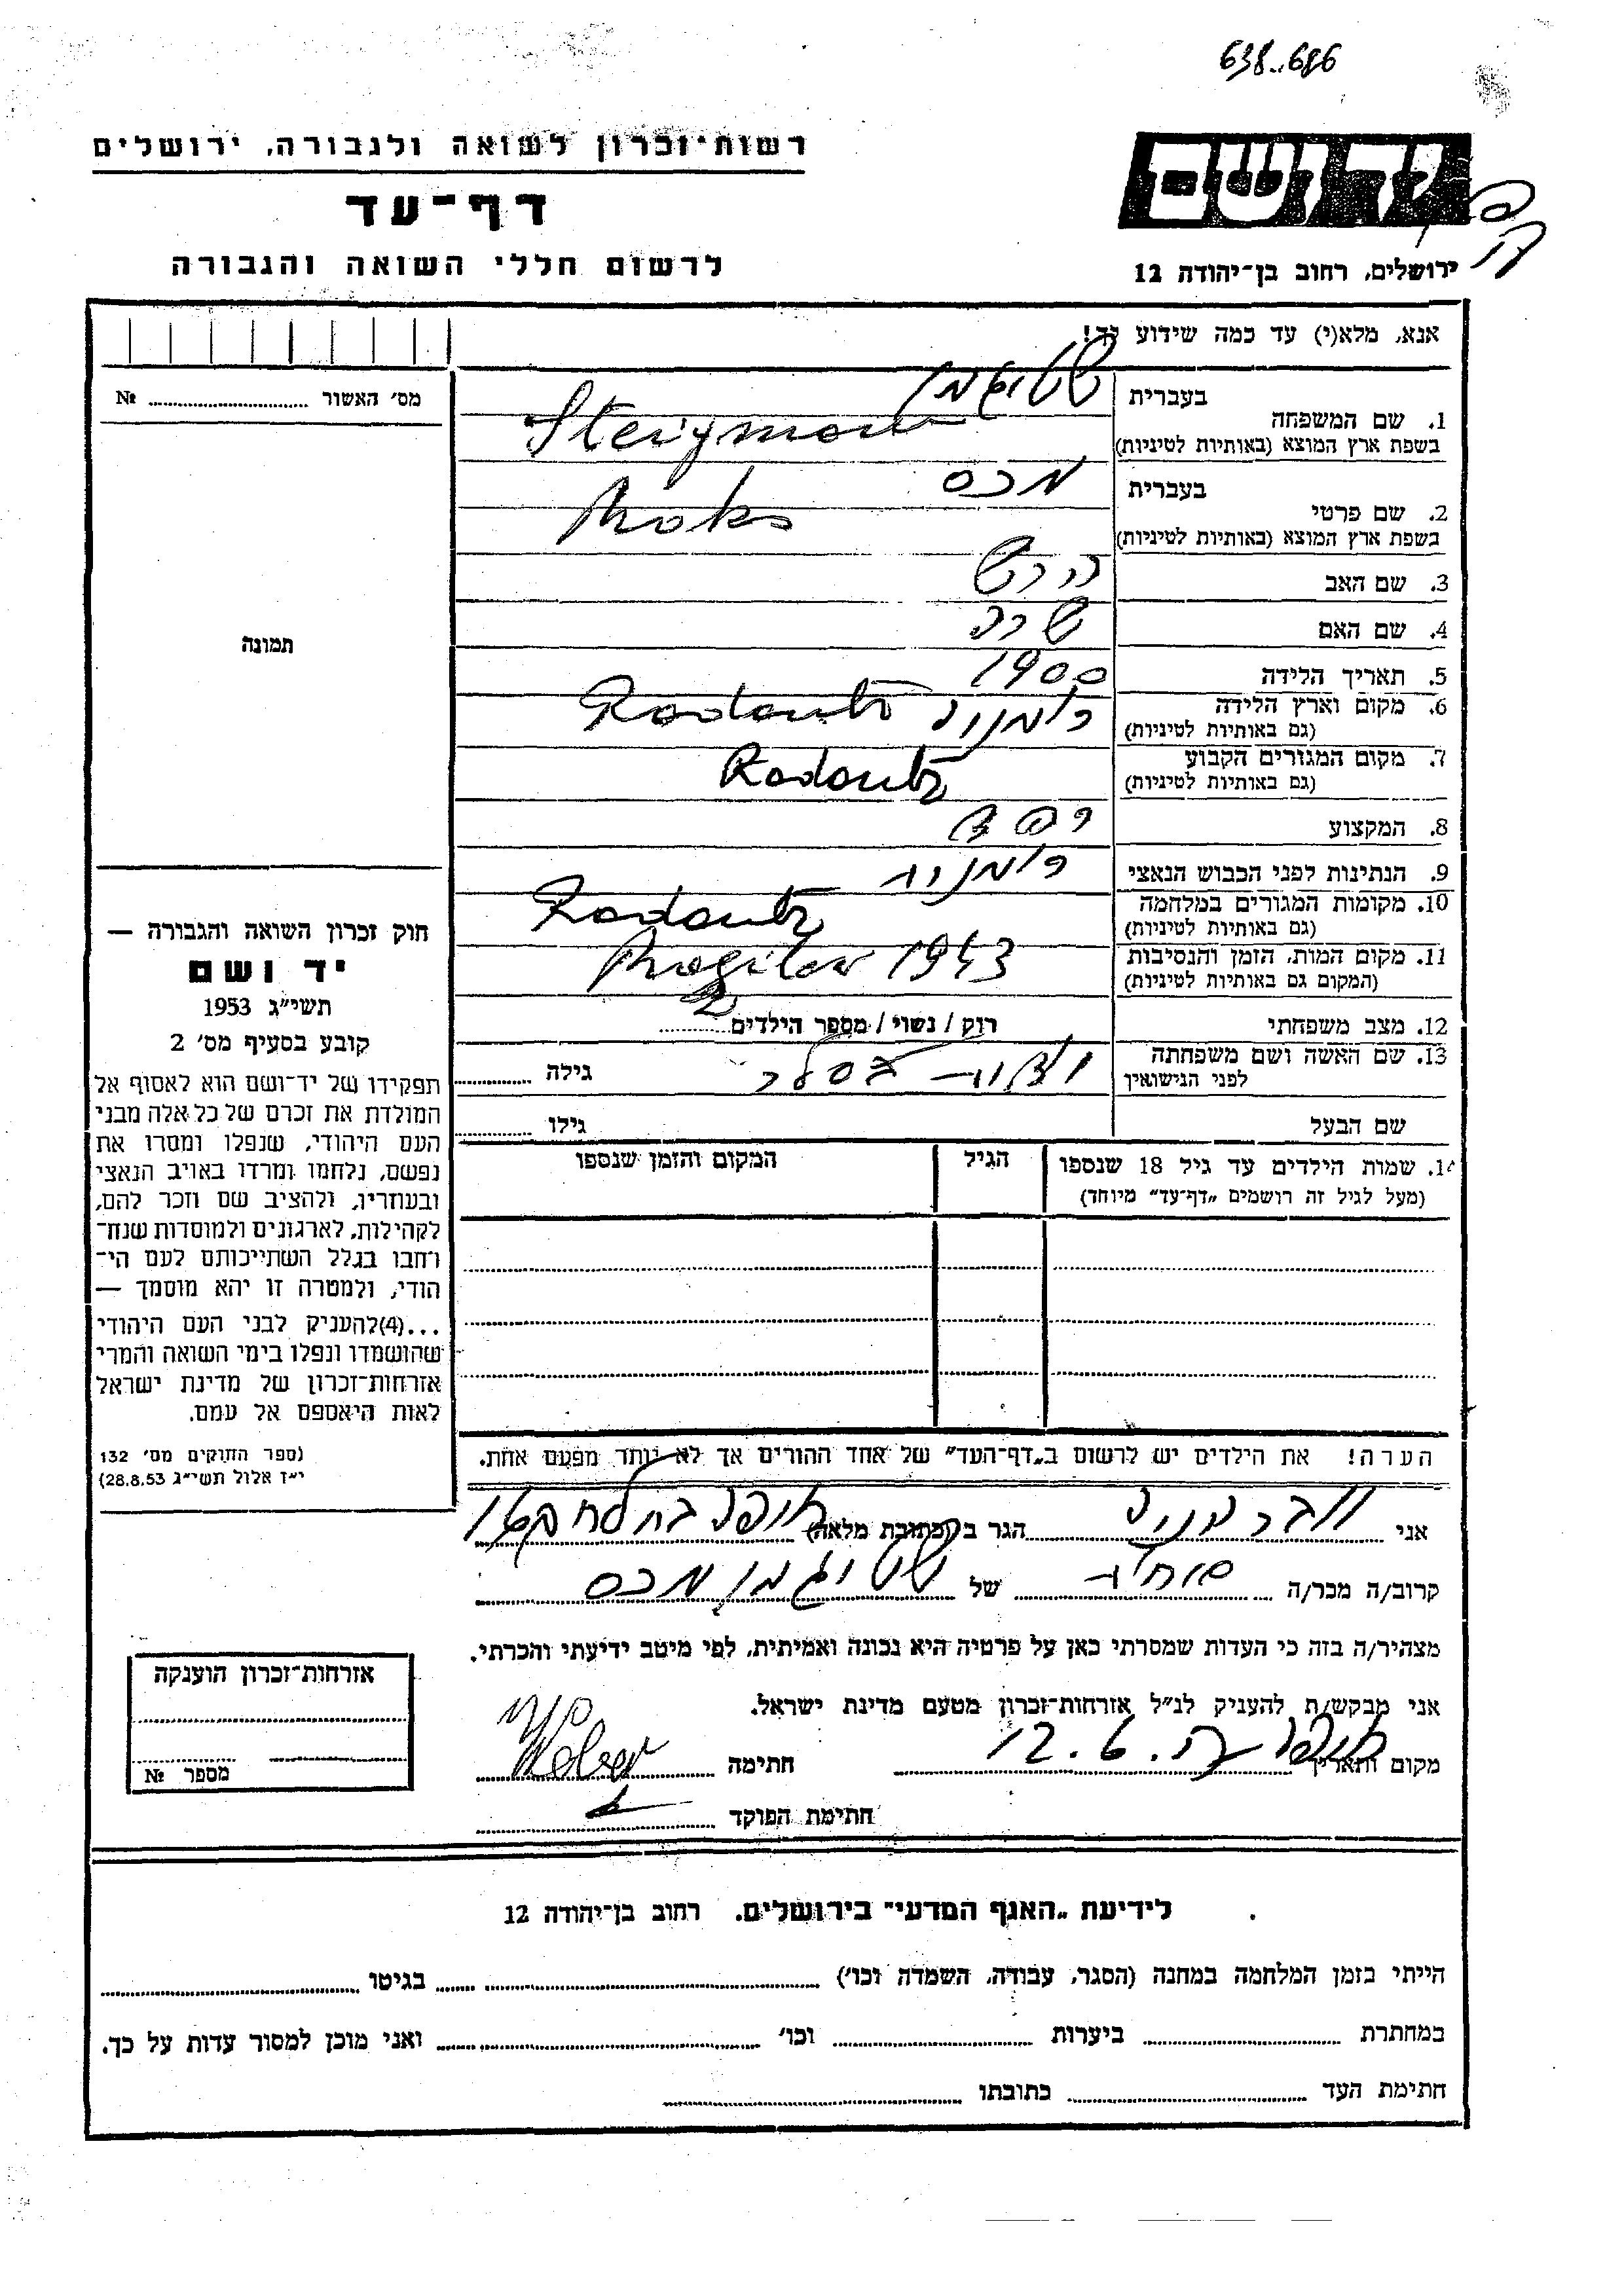 638..686
רשות־זכרון לשואה ולגבורה, ירושלים
דף־עד
לרשום חללי השואה והגבורה
יד ושם
ירושלים, רחוב בן־יהודה 12
אנא, מלא(י) עד כמה שידוע לך!
מס׳ האשור № 
תמונה
1. שם המשפחה בעברית שטיגמן
בשפת ארץ המוצא (באותיות לטיניות) Steigman
2. שם פרטי בעברית מכס
בשפת ארץ המוצא (באותיות לטיניות) Maks
3. שם האב הירש
4. שם האם שרה
5. תאריך הלידה 1900
6. מקום וארץ הלידה
(גם באותיות לטיניות) רומניה Radautz
7. מקום המגורים הקבוע
(גם באותיות לטיניות) Radautz
8. המקצוע
9. הנתינות לפני הכבוש הנאצי רומנית
10. מקומות המגורים במלחמה
(גם באותיות לטיניות) Radautz
11. מקום המות, הזמן והנסיבות
(המקום גם באותיות לטיניות) Mogilev 1943
12. מצב משפחתי רוק / נשוי / מספר הילדים 2
13. שם האשה ושם משפחתה
לפני הנישואין גילה
שם הבעל גילו
14. שמות הילדים עד גיל 18 שנספו הגיל המקום והזמן שנספו
(מעל לגיל זה רושמים „דף־עד” מיוחד)
חוק זכרון השואה והגבורה —
יד ושם
תשי״ג 1953
קובע בסעיף מס׳ 2
תפקידו של יד־ושם הוא לאסוף אל
המולדת את זכרם של כל אלה מבני
העם היהודי, שנפלו ומסרו את
נפשם, נלחמו ומרדו באויב הנאצי
ובעוזריו, ולהציב שם וזכר להם,
לקהילות, לארגונים ולמוסדות שנח־
רחבו בגלל השתייכותם לעם הי־
הודי, ולמטרה זו יהא מוסמך —
...(4)להעניק לבני העם היהודי
שהושמדו ונפלו בימי השואה והמרי
אזרחות־זכרון של מדינת ישראל
לאות היאספם אל עמם.
(ספר החוקים מס׳ 132
י״ז אלול תשי״ג 28.8.53)
הערה! את הילדים יש לרשום ב„דף־העד” של אחד ההורים אך לא יותר מפעם אחת.
אני וובר הגר ב (כתובת מלאה) חיפה
קרוב/ה מכר/ה של שטיגמן מכס
מצהיר/ה בזה כי העדות שמסרתי כאן על פרטיה היא נכונה ואמיתית, לפי מיטב ידיעתי והכרתי.
אני מבקש/ת להעניק לנ״ל אזרחות־זכרון מטעם מדינת ישראל.
מקום ותאריך חיפה 12.6. חתימה Weber
חתימת הפוקד
אזרחות־זכרון הוענקה
מספר №
לידיעת „האגף המדעי” בירושלים, רחוב בן־יהודה 12
הייתי בזמן המלחמה במחנה (הסגר, עבודה, השמדה וכו׳) בגיטו
במחתרת ביערות וכו׳ ואני מוכן למסור עדות על כך.
חתימת העד כתובתו